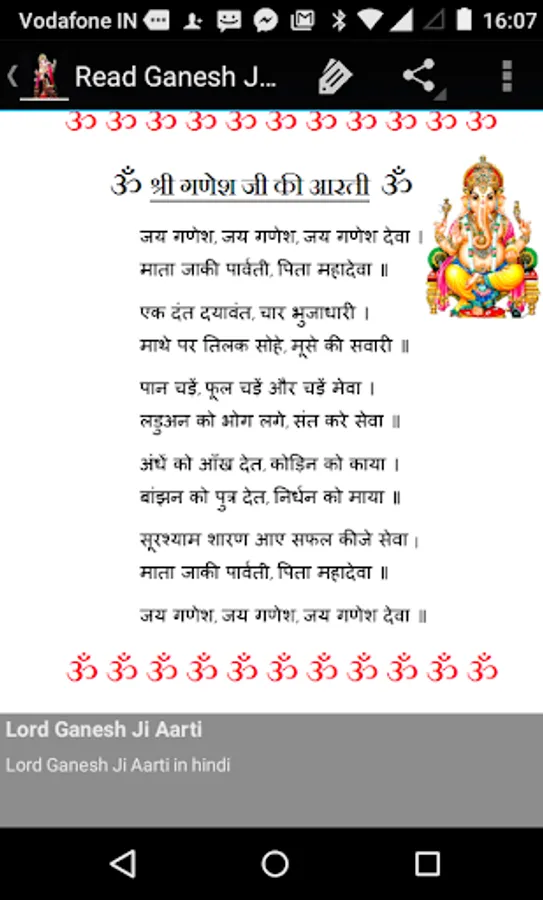 Vodafone IN 16:07
Read Ganesh J...
ॐ ॐ ॐ ॐ ॐ ॐ ॐ ॐ ॐ ॐ ॐ
ॐ श्री गणेश जी की आरती ॐ
जय गणेश, जय गणेश, जय गणेश देवा ।
माता जाकी पार्वती, पिता महादेवा ॥
एक दंत दयावंत, चार भुजाधारी ।
माथे पर तिलक सोहे, मूसे की सवारी ॥
पान चड़ें, फूल चड़ें और चड़ें मेवा ।
लडुअन को भोग लगे, संत करे सेवा ॥
अंधें को आँख देत, कोड़िन को काया ।
बांझन को पुत्र देत, निर्धन को माया ॥
सूरश्याम शारण आए सफल कीजे सेवा ।
माता जाकी पार्वती, पिता महादेवा ॥
जय गणेश, जय गणेश, जय गणेश देवा ॥
ॐ ॐ ॐ ॐ ॐ ॐ ॐ ॐ ॐ ॐ ॐ
Lord Ganesh Ji Aarti
Lord Ganesh Ji Aarti in hindi